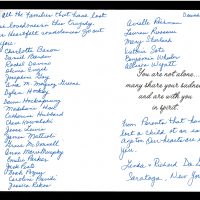 all the Families that have lost
loved ones in this tragedy.
Heartfelt condolences go out
you:
Charlotte Bacon
Daniel Barden
Rachel Davino
Olivia Engel
Josephine Gay
Ana M. Marquez Greene
Dylan Hockley
Dawn Hochsprung
Madeleine Hsu
Catherine Hubbard
Chase Kowalski
Jesse Lewis
James Mattioli
Grace McDonnell
Anne Marie Murphy
Emilie Parker
Jack Pinto
Noah Pozner
Caroline Previdi
Jessica Rekos
Avielle Richman
Lauren Rousseau
Mary Sherlach
Victoria Soto
Benjamin Wheeler
Allison Wyatt
You are not alone.
many share your sadness
and are with you
in spirit.
From Parents that have
lost a child of our own
our hearts
you.
Linda & Richard
Saratoga, New